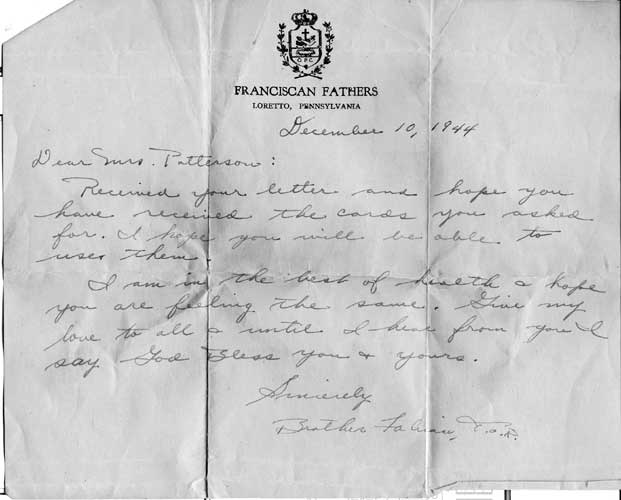 FRANCISCAN FATHERS
LORETTO, PENNSYLVANIA
December 10, 1944
Dear Mrs. Patterson:
Received your letter and hope you
have received the cards you asked
for. I hope you will be able to
use them.
I am in the best of health & hope
you are feeling the same. Give my
love to all & until I hear from you I
say God Bless you & yours.
Sincerely
Brother Fabian, T.O.R.